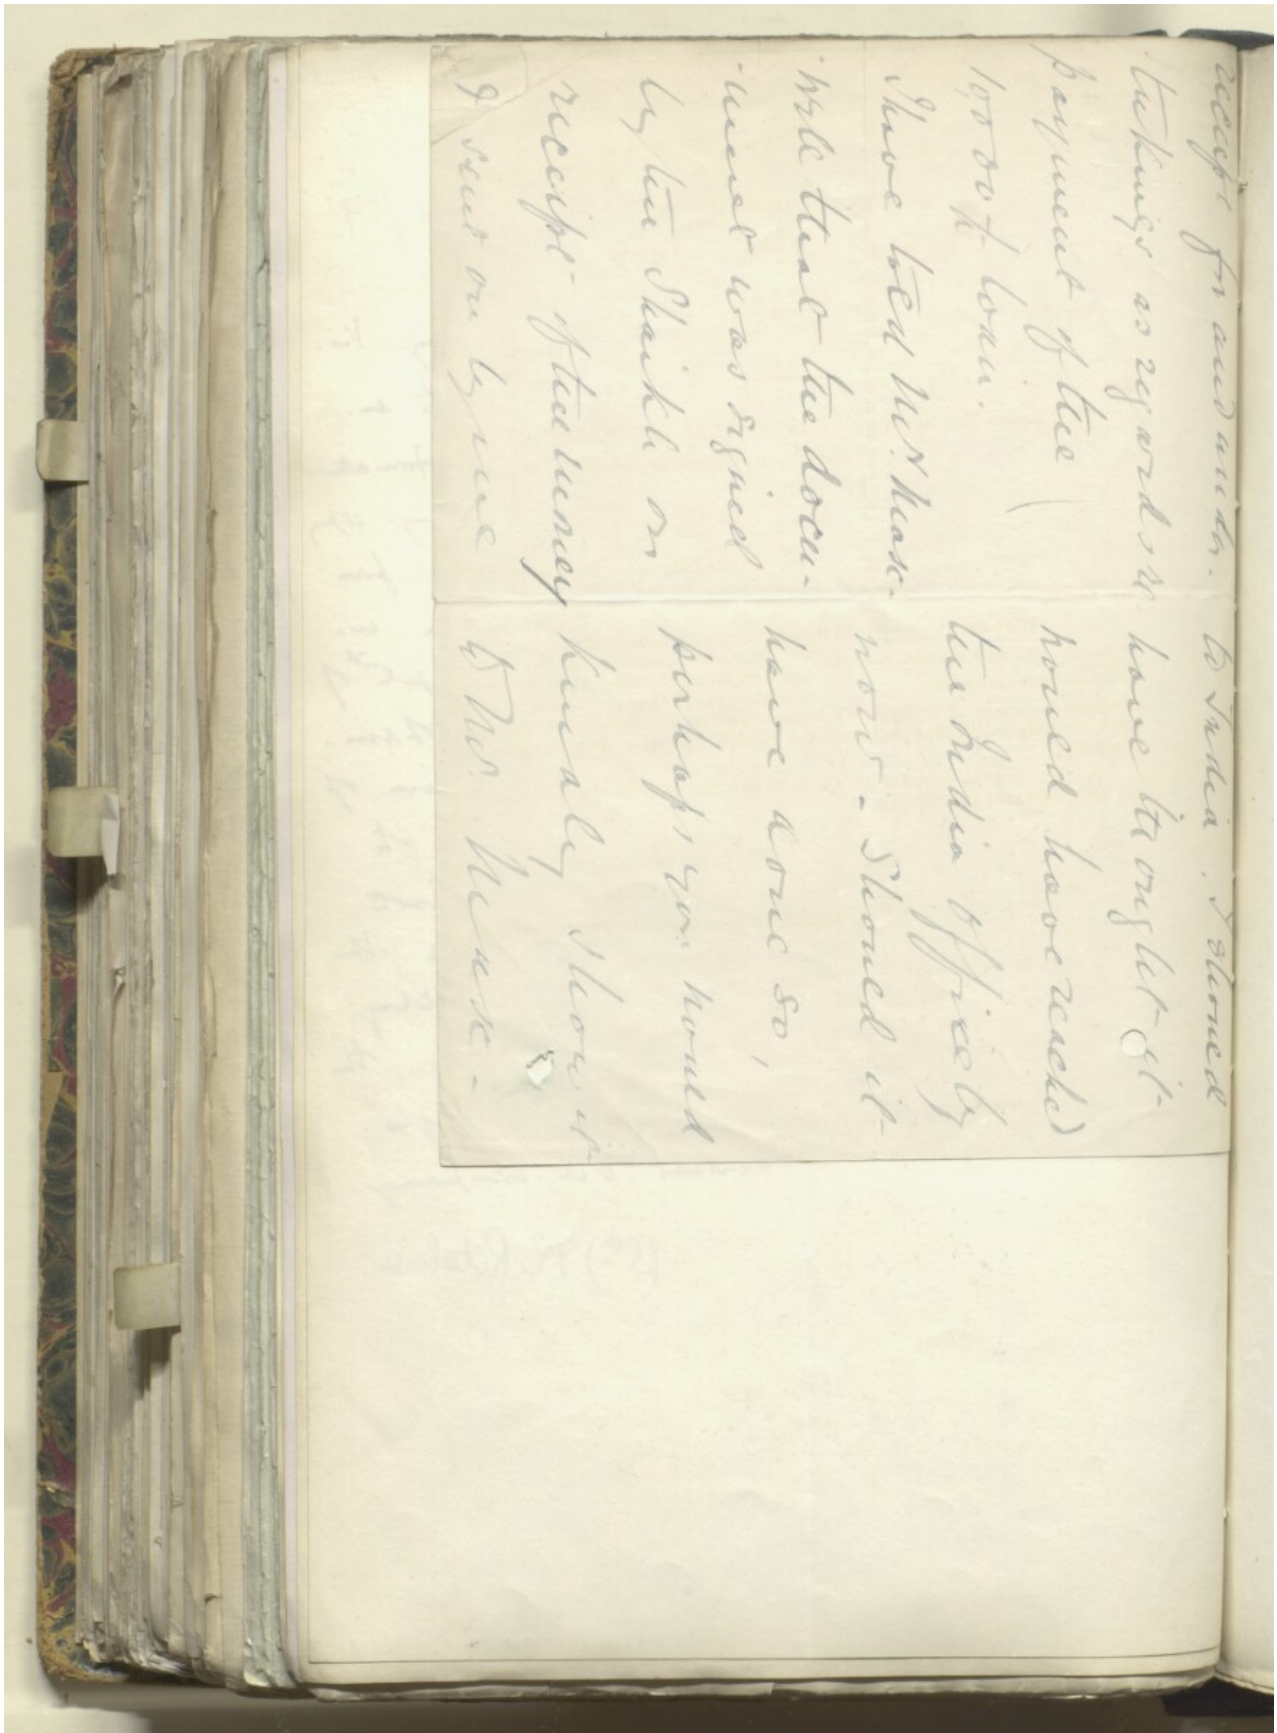 receipt for and under-
takings as regards re-
payment of the
10000£ loan.
I have told Mr. Mase-
-
field that the docu-
-ment was signed
by the Shaikh on
receipt of the money
& sent on by me
to India. I should
have thought it
would have reached
the India Office by
now - Should it
have done so,
perhaps you would
kindly show it
to Mr.